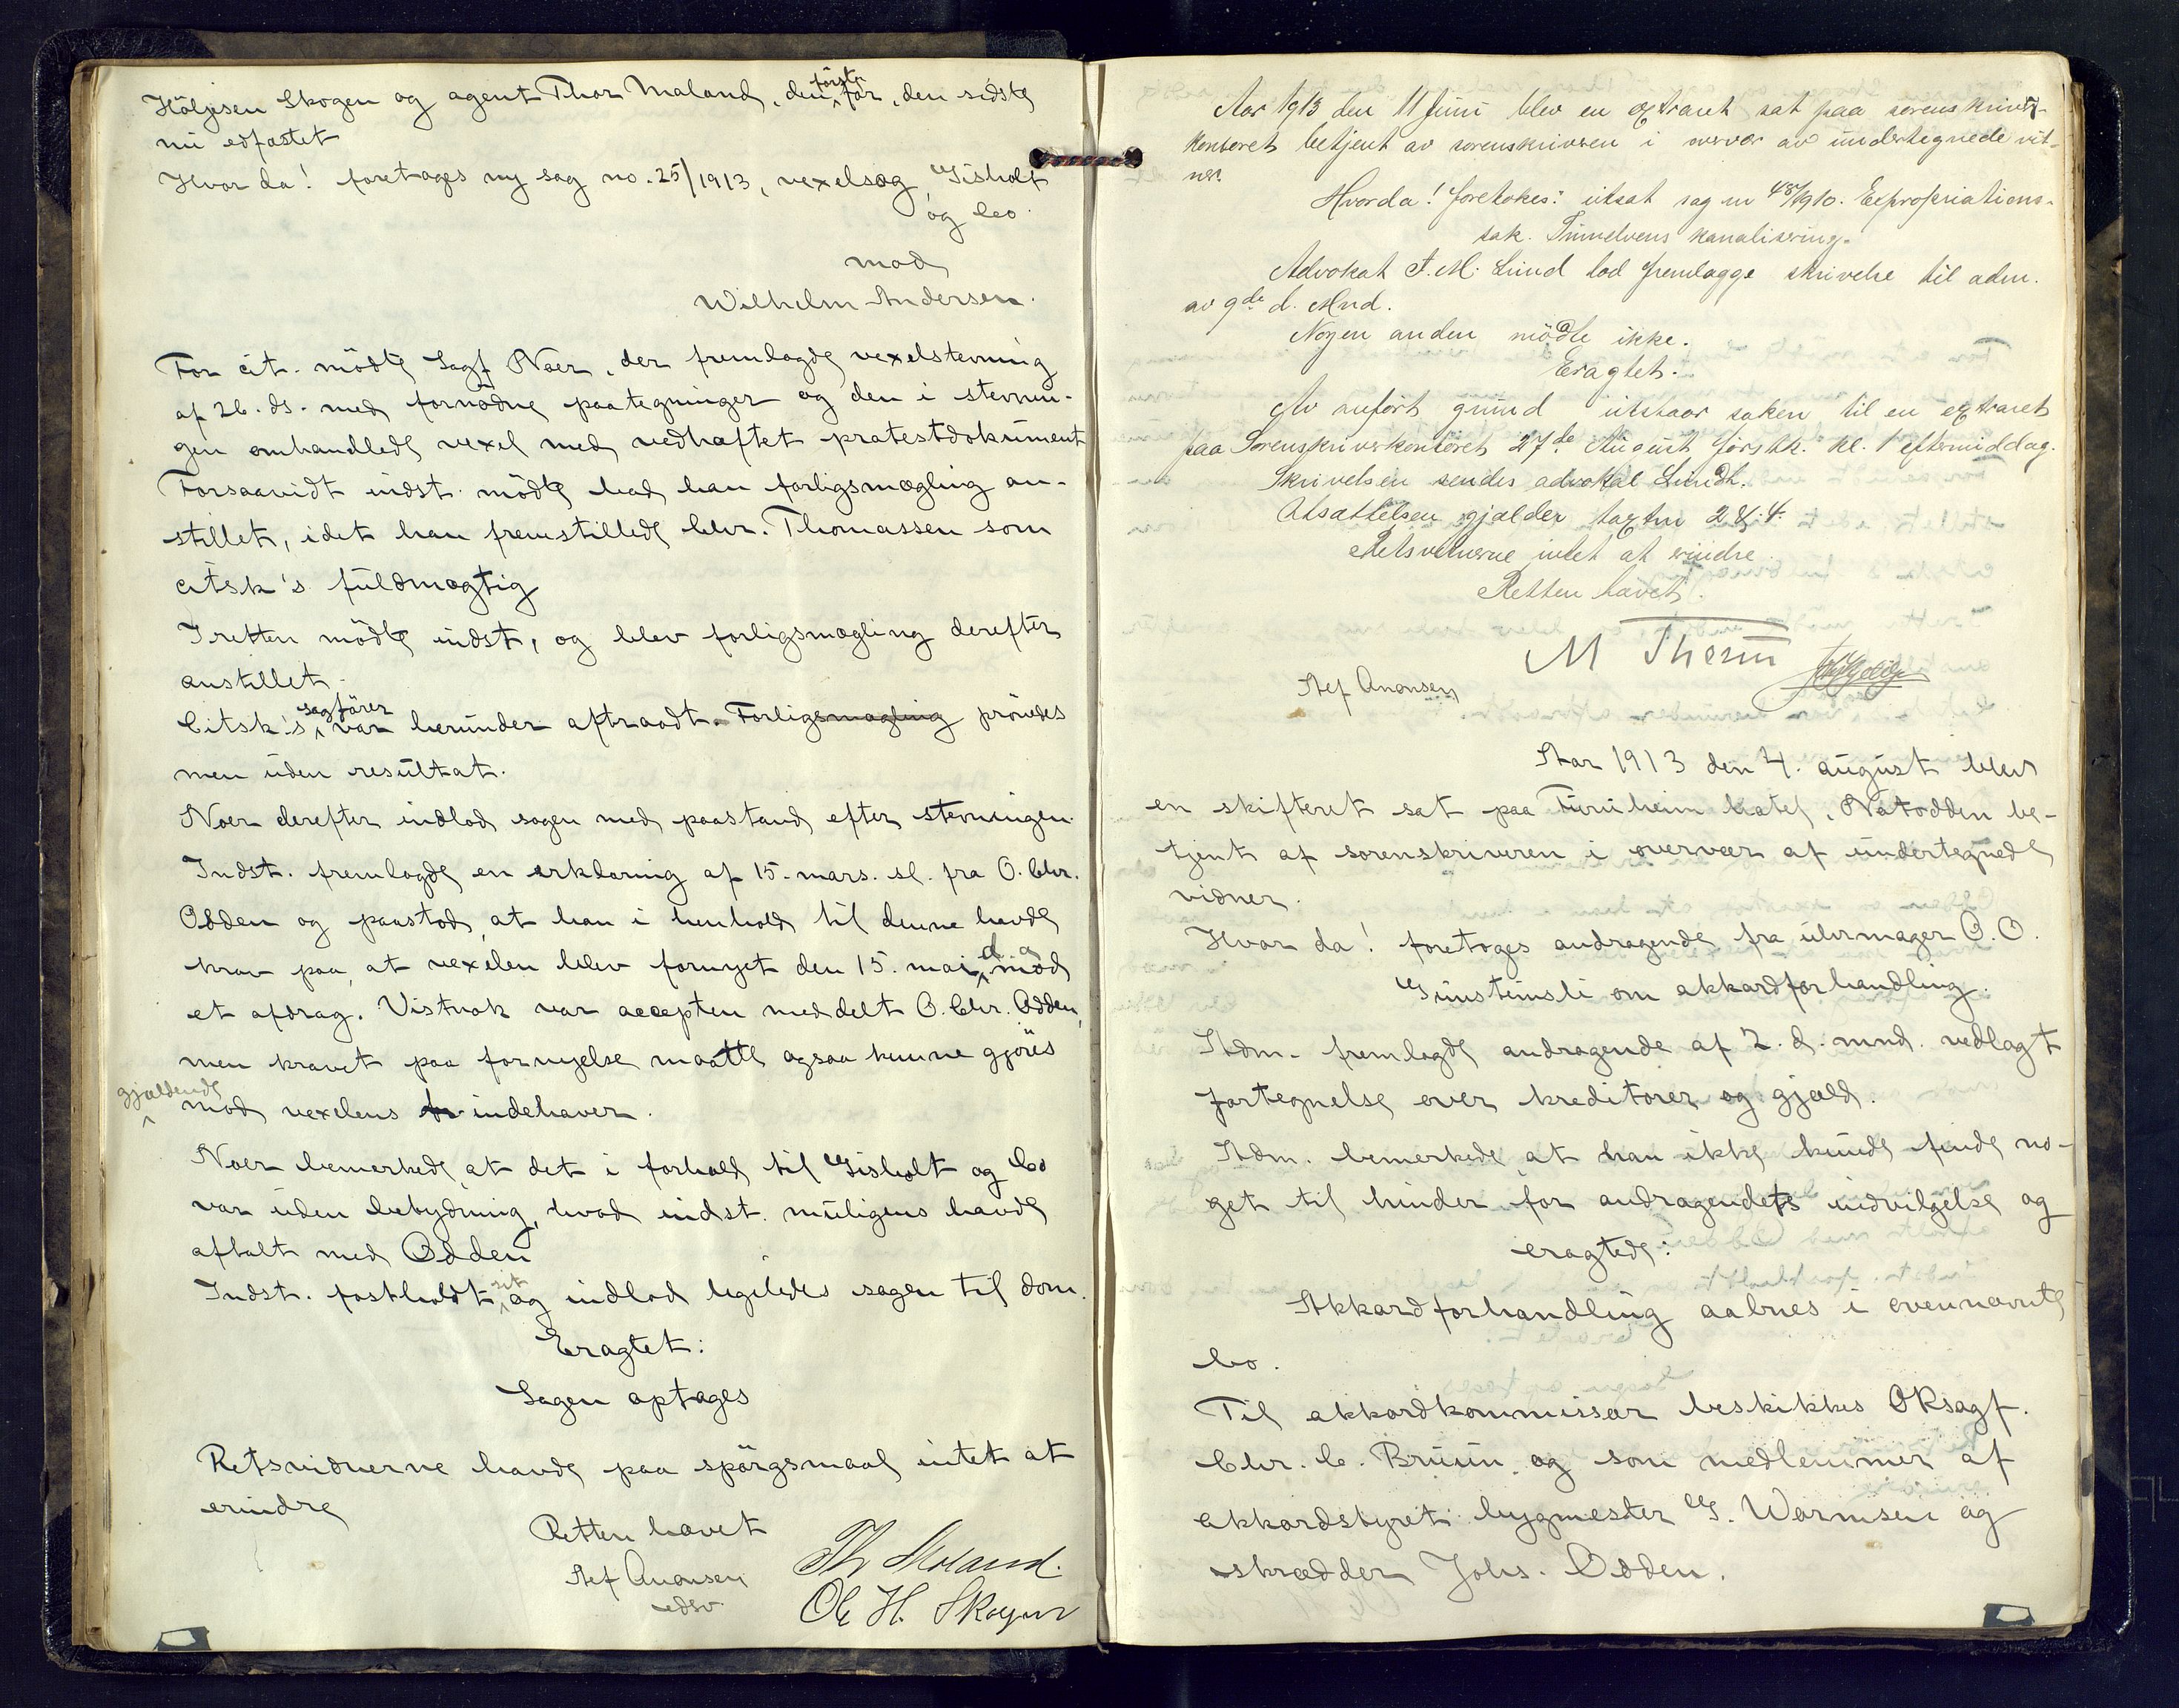 Höljesen Skogen og agent Thor Moland, den første för, den sidste
nu edfæstet
Hvor da! foretages ny sag no. 25/1913, vexelsag, Gisholt
og Co.
mod
Wilhelm Andersen.
For cit. mödte Sagf Noer, der fremlagde vexelstevning
af 26. ds. med fornødne paategninger og den i stevnin-
gen omhandlede vexel med vedhæftet protestdokument
Forsaavidt indst. mödte bad han forligsmægling an-
stillet, idet han fremstillede Chr. Thomassen som
citsk's fuldmægtig
I retten mödte indst, og blev forligsmægling derefter
anstillet.
Citsk's sagförer var herunder aftraadt. Forligsmægling prövedes
men uden resultat.
Noer derefter indlod sagen med paastand efter stevningen.
Indst. fremlagde en erklæring af 15. mars. sl. fra O. Chr.
Odden og paastod, at han i henhold til denne havde
krav paa, at vexelen blev fornyet den 15. mai d. a. mod
et afdrag. Vistnok var accepten meddelt O. Chr. Odden,
men kravet paa fornyelse maatte ogsaa kunne gjöres
gjældende mod vexelens indehaver.
Noer bemerkede, at det i forhold til Gisholt og Co
var uden betydning, hvad indst. muligens havde
aftalt med Odden
Indst. fastholdt sit og indlod ligeledes sagen til dom.
Eragtet:
Sagen optages
Retsvidnerne havde paa spörgsmaal intet at
erindre
Retten hævet
Stef Anansen
edsv.
Th Moland.
Ole H. Skogen
Aar 1913 den 11 Juni blev en extraret sat paa sorenskriver-
kontoret betjent av sorenskriveren i overvær av undertegnede vit-
ner.
Hvorda! foretokes: utsat sag nr 48/1910. Expropriations-
sak. Tinnelvens kanalisering.
Advokat F. M. Lund lod fremlægge skrivelse til adm.
av 9de d. Mnd.
Nogen anden mödte ikke.
Eragtet.
Av anfört grund utstaar saken til en extraret
paa Sorenskriverkontoret 27de August förstk. kl. 1 eftermiddag.
Skrivelsen sendes advokat Lundh.
Utsættelsen gjælder taxtnr 2 & 4.
Retsvitnerne intet at erindre.
Retten hævet.
M Theru
Stef Anansen
Aar 1913 den 4. august blev
en skifteret sat paa Furuheim hotel, Notodden be-
tjent af sorenskriveren i overvær af undertegnede
vidner.
Hvor da! foretoges andragende fra uhrmager O. O.
Grunsteinsli om akkordforhandling.
Adm. fremlagde andragende af 2. d. mnd. vedlagt
fortegnelse over kreditorer og gjæld.
Adm. bemerkede, at han ikke kunde finde no-
get til hinder for andragendets indvilgelse og
eragtede:
Akkordforhandling aabnes i ovennævnte
bo.
Til akkordkommissær beskikkes OKsagf.
Chr. C. Bruun, og som medlemmer af
akkordstyret: bygmester G. Warmsen og
skrædder Johs. Odden.